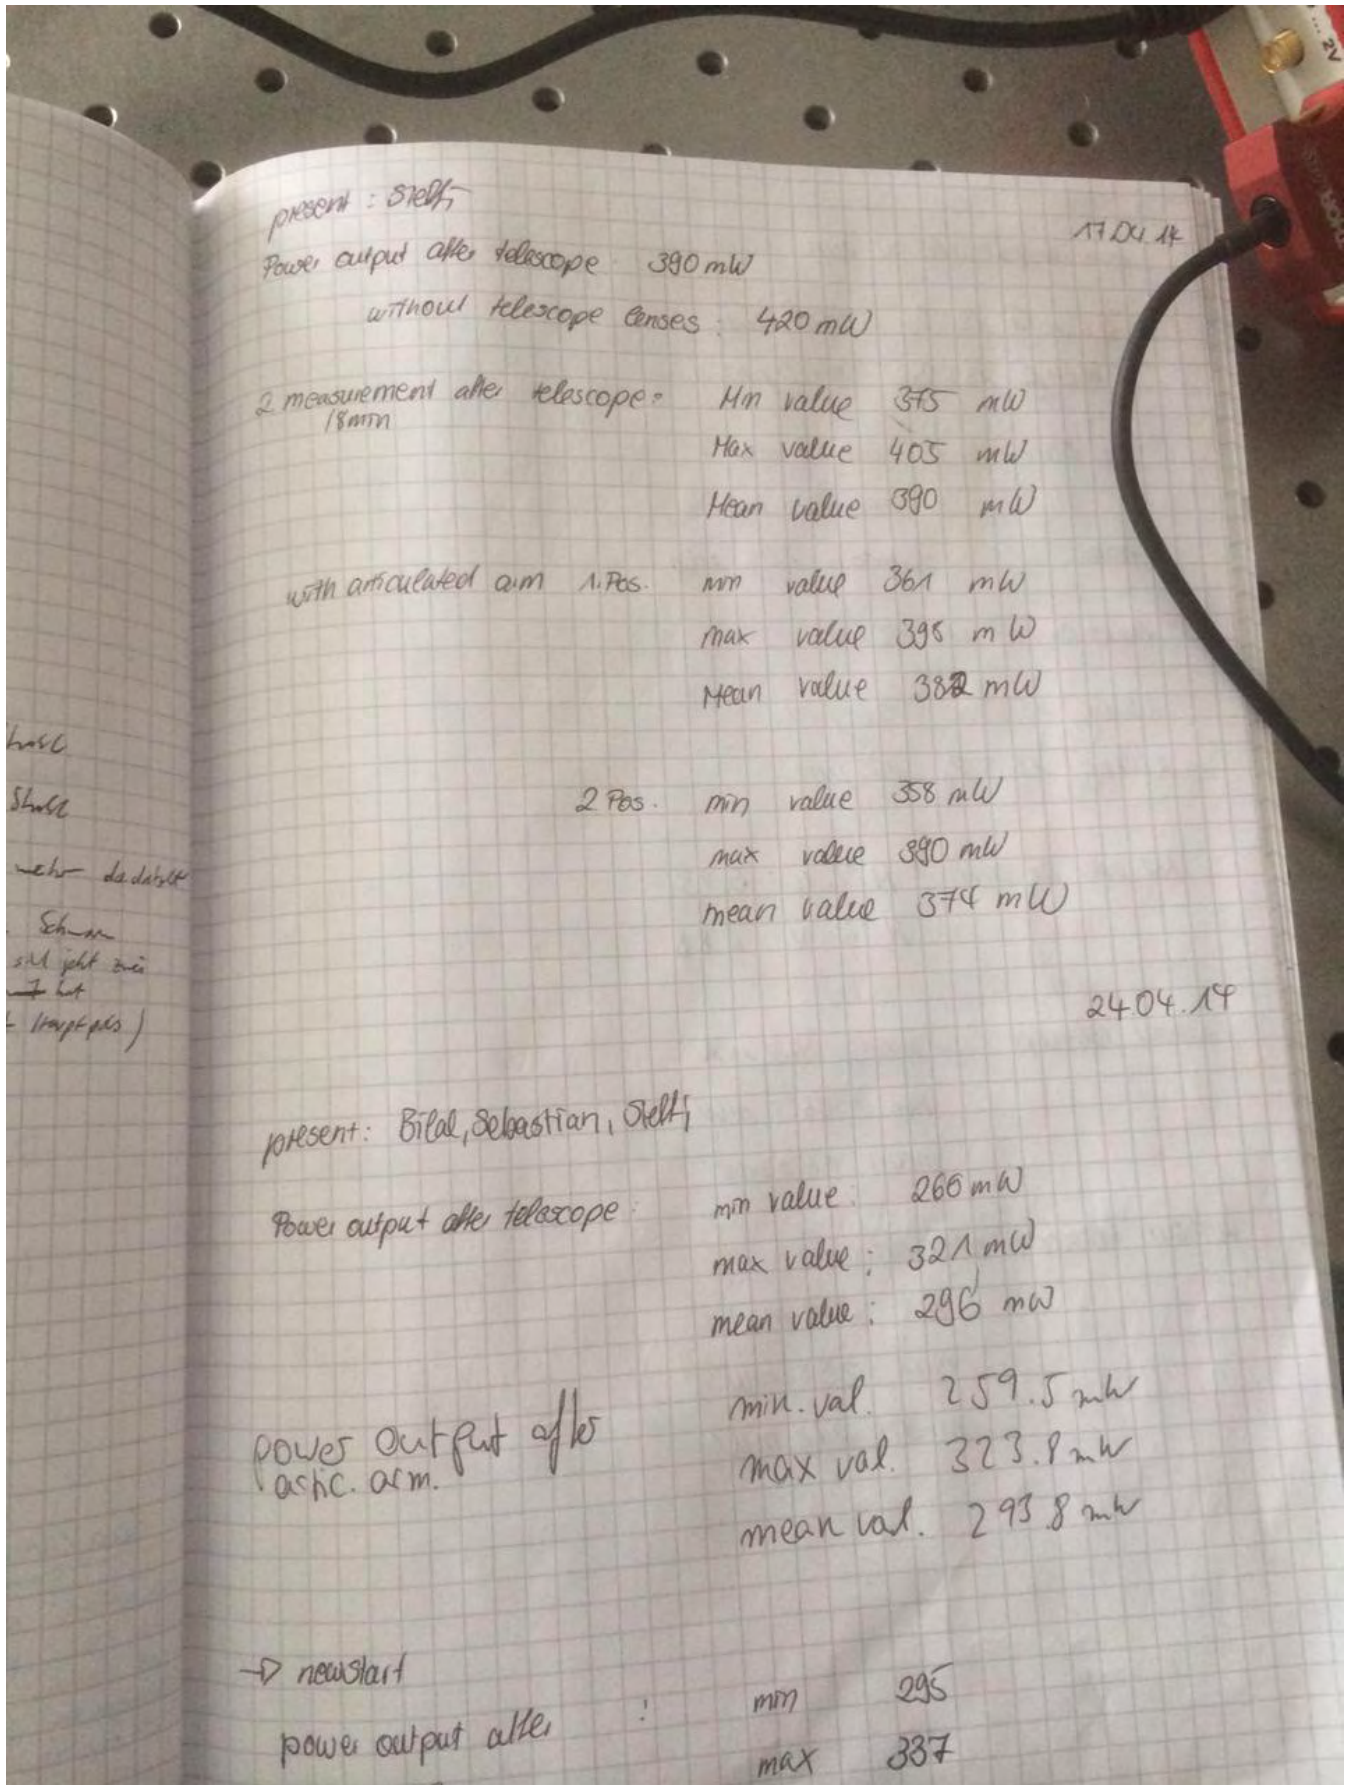 present : Steffi
17.04.14
Power output after telescope 390 mW
without telescope lenses : 420 mW
2 measurement after telescope: Min value 375 mW
18min
Max value 405 mW
Mean value 390 mW
with articulated arm 1. Pos. min value 361 mW
max value 395 mW
Mean value 382 mW
2 Pos. min value 358 mW
max value 390 mW
mean value 374 mW
24.04.14
present: Bilal, Sebastian, Steffi
Power output after telescope : min value : 266 mW
max value : 321 mW
mean value : 296 mW
power output after min. val. 259.5 mW
artic. arm. max val. 323.8 mW
mean val. 293.8 mW
→ newstart
power output after : min 295
max 337
mehr
jetzt zwei
2V